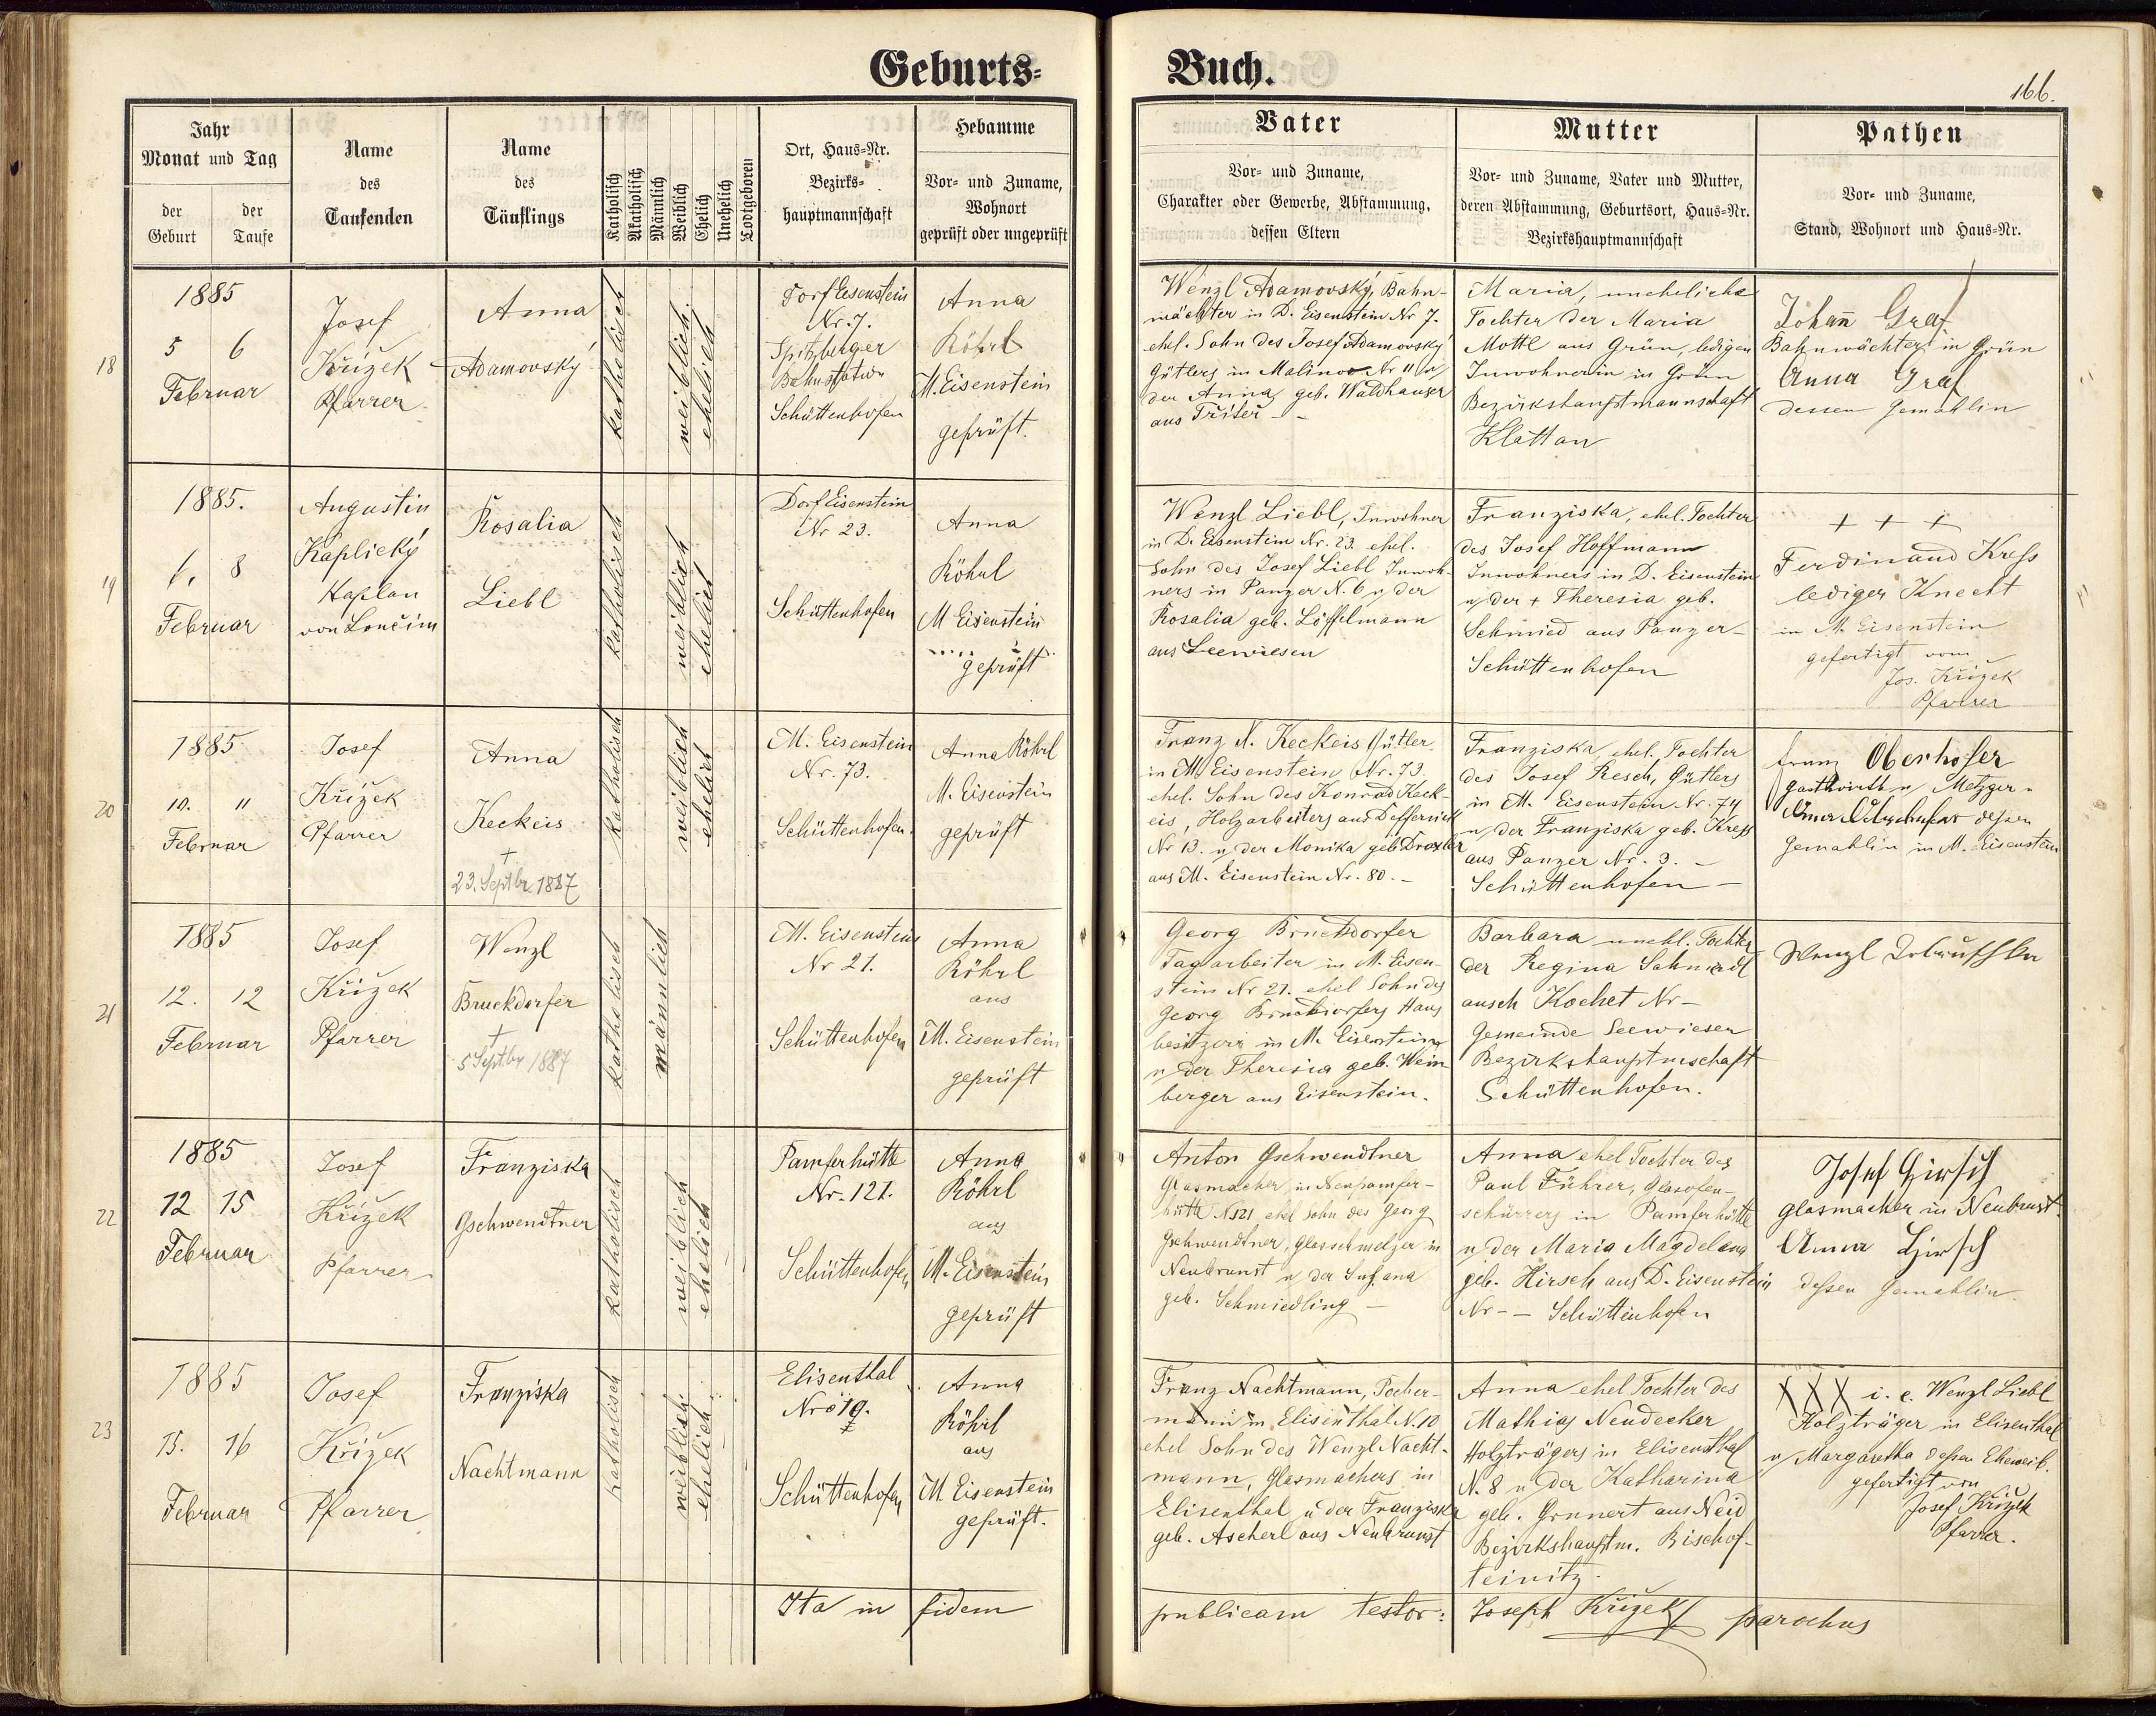 Geburts-
Buch.
166.
Jahr
Monat und Tag
der Geburt
der Taufe
Name
des
Taufenden
Name
des
Täuflings
Katholisch
Akatholisch
Männlich
Weiblich
Ehelich
Unehelich
Todtgeboren
Ort, Haus-Nr.
Bezirks-
hauptmannschaft
Hebamme
Vor- und Zuname,
Wohnort
geprüft oder ungeprüft
Vater
Vor- und Zuname,
Charakter oder Gewerbe, Abstammung,
dessen Eltern
Mutter
Vor- und Zuname, Vater und Mutter,
deren Abstammung, Geburtsort, Haus-Nr.
Bezirkshauptmannschaft
Pathen
Vor- und Zuname,
Stand, Wohnort und Haus-Nr.
18
1885
5 6
Februar
Josef
Křížek
Pfarrer
Anna
Adamovský
katholisch
weiblich
ehelich
Dorf Eisenstein
Nr. 7.
Spitzberger
Bahnstation
Schüttenhofen
Anna
Röhrl
M. Eisenstein
geprüft.
Wenzl Adamovský, Bahn-
wächter in D. Eisenstein Nr 7.
ehel. Sohn des Josef Adamovský
Gütlers in Malinow Nr 11 u
der Anna, geb. Waldhauser
aus
Maria, uneheliche
Tochter der Maria
Mottl aus Grün, ledigen
Inwohnerin in Grün
Bezirkshauptmannschaft
Klattau
Johañ Graf
Bahnwächter in Grün
Anna Graf
dessen Gemahlin
19
1885.
6. 8
Februar
Augustin
Kaplický
Kaplan
von Lončim
Rosalia
Liebl
katholisch
weiblich
ehelich
Dorf Eisenstein
Nr 23.
Schüttenhofen
Anna
Röhrl
M Eisenstein
geprüft
Wenzl Liebl, Inwohner
in D. Eisenstein Nr. 23. ehel.
Sohn des Josef Liebl Inwoh-
ners in Panzer N. 6 u der
Rosalia geb. Löffelmann
aus Seewiesen
Franziska, ehel. Tochter
des Josef Hoffmann
Inwohners in D. Eisenstein
u der + Theresia geb.
Schmied aus Panzer-
Schüttenhofen
+ + +
Ferdinand Kreß
lediger Knecht
in M. Eisenstein
gefertigt vom
Jos. Křížek
Pfarrer
20
1885
10. 11
Februar
Josef
Křížek
Pfarrer
Anna
Keckeis
+
23. Septbr 1887
katholisch
weiblich
ehelich
M. Eisenstein
Nr. 73.
Schüttenhofen.
Anna Röhrl
M. Eisenstein
geprüft
Franz X. Keckeis Gütler
in M. Eisenstein Nr. 73.
ehel. Sohn des Konrad Keck-
eis, Holzarbeiters aus Deffernik
Nr 13. u der Monika geb Droxler
aus M. Eisenstein Nr. 80. -
Franziska ehel. Tochter
des Josef Resch, Gütlers
in M. Eisenstein Nr. 74
u der Franziska geb. Kreß
aus Panzer Nr. 3. -
Schüttenhofen -
Franz Oberhofer
Gastwirth u Metzger
Anna Oberhofer dessen
Gemahlin in M. Eisenstein
21
1885
12. 12
Februar
Josef
Křížek
Pfarrer
Wenzl
Bruckdorfer
+
5 Septbr 1887
katholisch
männlich
M. Eisenstein
Nr 21.
Schüttenhofen
Anna
Röhrl
aus
M. Eisenstein
geprüft
Georg Bruckdorfer
Tagarbeiter in M. Eisen-
stein Nr 21. ehel Sohn des
Georg Bruckdorfers Haus
besitzers in M. Eisenstein
u der Theresia geb. Wein
berger aus Eisenstein.
Barbara unehl. Tochter
der Regina
Kochet Nr -
Gemeinde Seewiesen
Bezirkshauptmschaft
Schüttenhofen.
Wenzl
22
1885
12 15
Februar
Josef
Křížek
Pfarrer
Franziska
Gschwendtner
katholisch
weiblich
ehelich
Pamferhütte
Nr. 121.
Schüttenhofen
Anna
Röhrl
aus
M. Eisenstein
geprüft
Anton Gschwendtner
Glasmacher in Neupamfer-
hütte N 121 ehel Sohn des Georg
Gschwendtner, Glasschmelzer in
Neubrunst u der Susana
geb. Schmiedling -
Anna ehel Tochter des
Paul Führer, Glasofen-
schürrers in Pamferhütte
u der Maria Magdelena
geb. Hirsch aus D. Eisenstein
Nr - - Schüttenhofen
Josef Hirsch
Glasmacher in Neubrunst.
Anna Hirsch
dessen Gemahlin.
23
1885
15. 16
Februar
Josef
Křížek
Pfarrer
Franziska
Nachtmann
katholisch
weiblich
ehelich
Elisenthal
Nro 10.
Schüttenhofen
Anna
Röhrl
aus
M. Eisenstein
geprüft.
Franz Nachtmann, Pocher-
mann in Elisenthal N. 10
ehel Sohn des Wenzl Nacht-
mann, Glasmachers in
Elisenthal u der Franziska
geb. Ascherl aus Neubrunst
Anna ehel Tochter des
Mathias Neudecker
Holzträgers in Elisenthal
N. 8 u der Katharina
geb. Grunert aus Neid
Bezirkshauptm. Bischof-
teinitz.
XXX i. e. Wenzl Liebl
Holzträger in Elisenthal
u Margaretha dessen Eheweib.
gefertigt von
Josef Křížek
Pfarrer.
Ita in fidem publicam testor: Joseph Křížek parochus